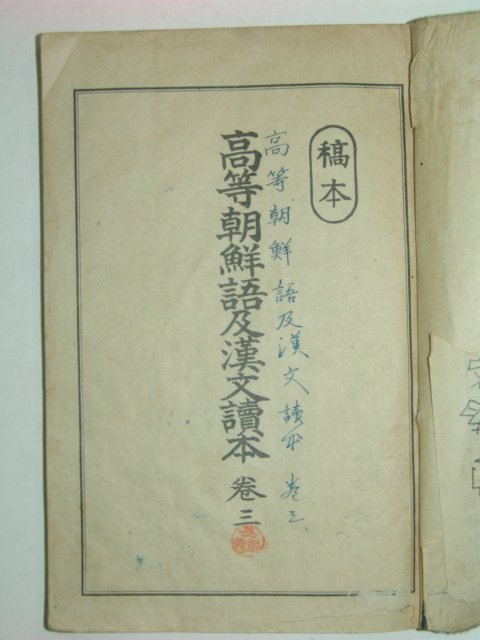 稿本
高等朝鮮語及漢文讀本 卷三
高等朝鮮語及漢文讀本 卷三